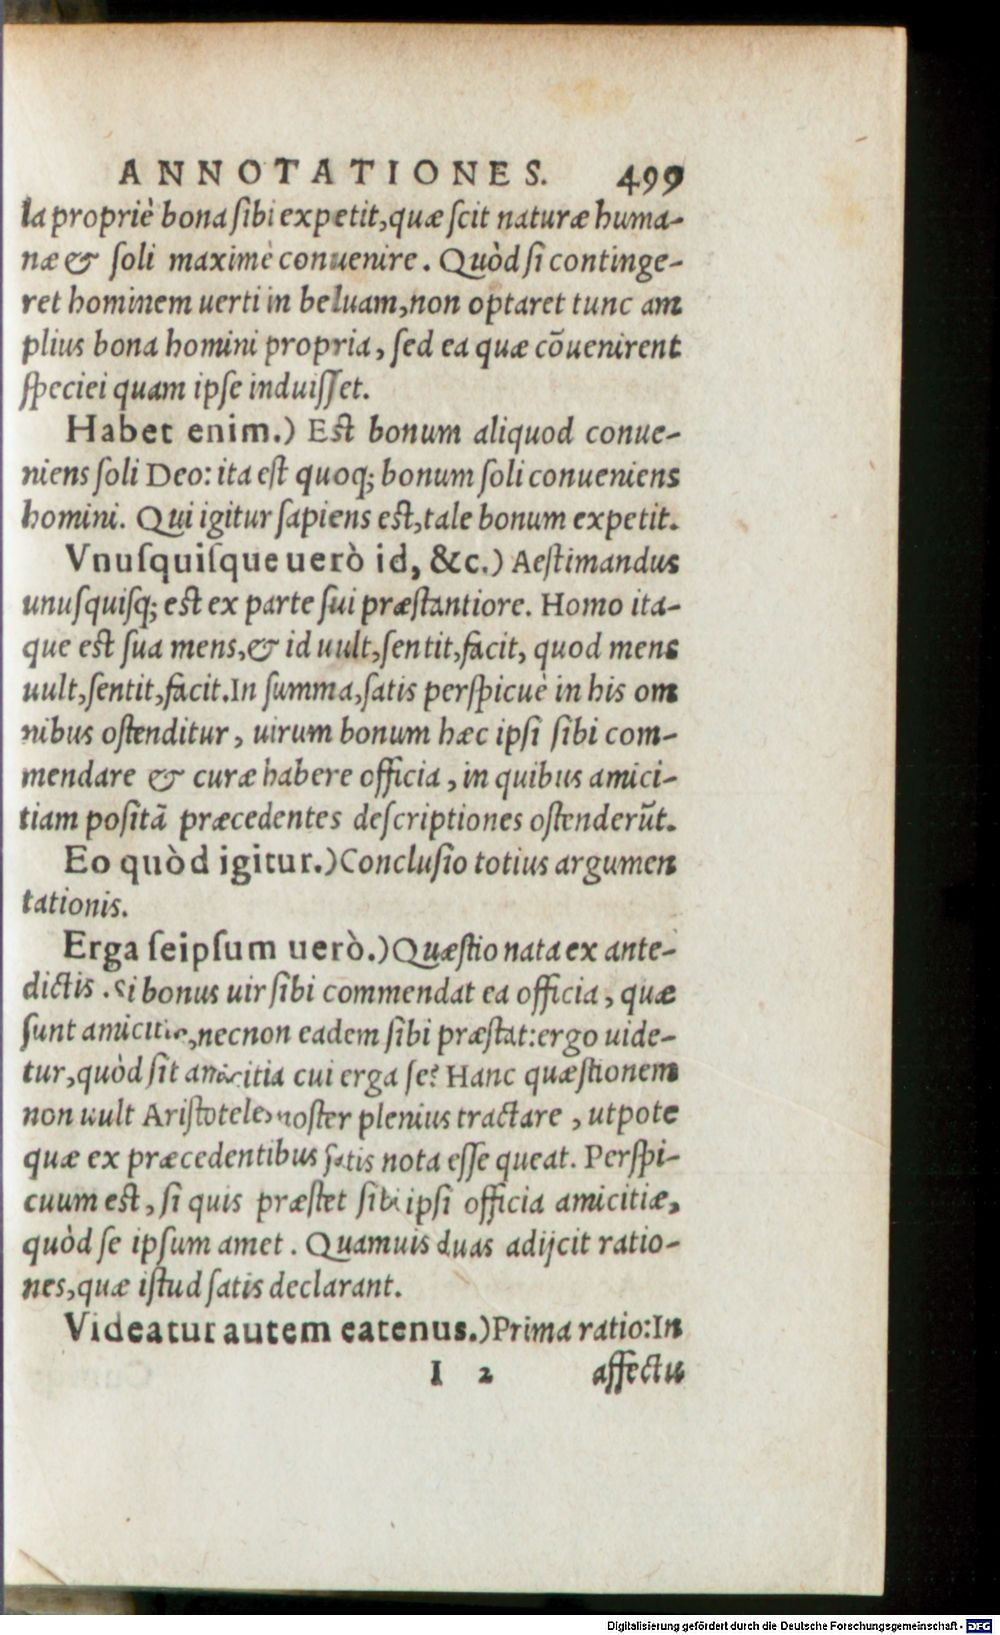 ANNOTATIONES. 499
la propriè bona sibi expetit, quæ scit naturæ huma-
næ & soli maximè conuenire. Quòd si continge-
ret hominem uerti in beluam, non optaret tunc am
plius bona homini propria, sed ea quæ cōuenirent
speciei quam ipse induisset.
Habet enim.) Est bonum aliquod conue-
niens soli Deo: ita est quoq; bonum soli conueniens
homini. Qui igitur sapiens est, tale bonum expetit.
Vnusquisque uerò id, &c.) Aestimandus
unusquisq; est ex parte sui præstantiore. Homo ita-
que est sua mens, & id uult, sentit, facit, quod mens
uult, sentit, facit. In summa, satis perspicuè in his om
nibus ostenditur, uirum bonum hæc ipsi sibi com-
mendare & curæ habere officia, in quibus amici-
tiam positā præcedentes descriptiones ostenderūt.
Eo quòd igitur.) Conclusio totius argumen
tationis.
Erga seipsum uerò.) Quæstio nata ex ante-
dictis. Si bonus uir sibi commendat ea officia, quæ
sunt amicitiæ, necnon eadem sibi præstat: ergo uide-
tur, quòd sit amicitia cui erga se? Hanc quæstionem
non uult Aristoteles noster plenius tractare, utpote
quæ ex præcedentibus satis nota esse queat. Perspi-
cuum est, si quis præstet sibi ipsi officia amicitiæ,
quòd se ipsum amet. Quamuis duas adijcit ratio-
nes, quæ istud satis declarant.
Videatur autem eatenus.) Prima ratio: In
I 2 affectu
Digitalisierung gefördert durch die Deutsche Forschungsgemeinschaft - DFG